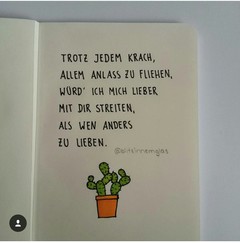 TROTZ JEDEM KRACH,
ALLEM ANLASS ZU FLIEHEN,
WÜRD' ICH MICH LIEBER
MIT DIR STREITEN,
ALS WEN ANDERS
ZU LIEBEN.